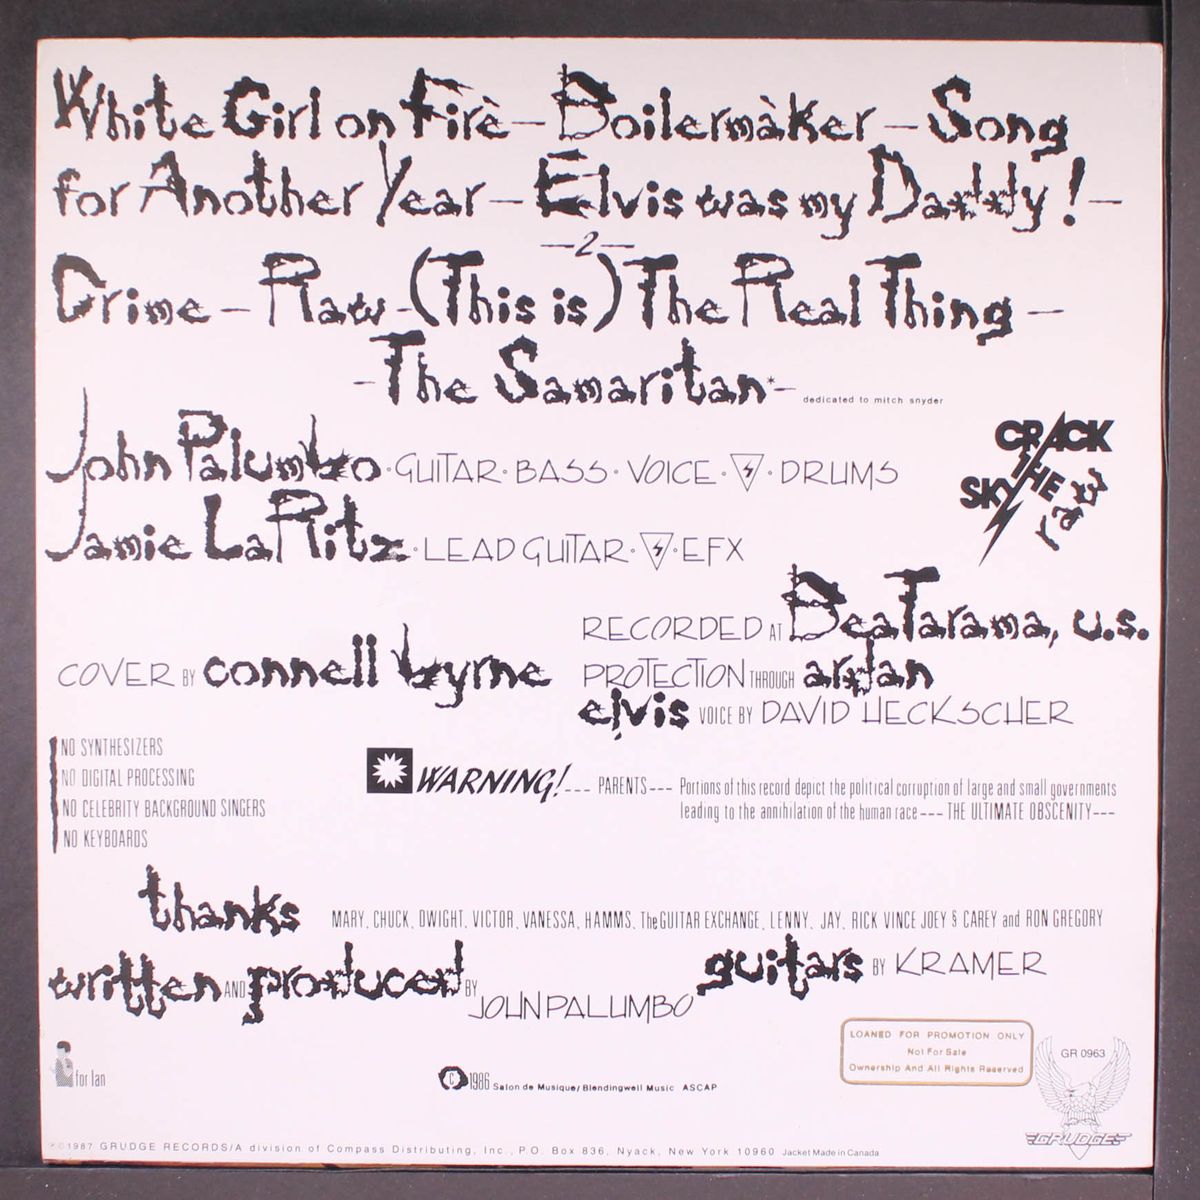 White Girl on Fire — Boilermaker — Song
for Another Year — Elvis was my Daddy! —
—2—
Crime — Raw - (This is) The Real Thing —
- The Samaritan*- dedicated to mitch snyder
John Palumbo · GUITAR · BASS · VOICE · DRUMS
CRACK
THE
SKY
raw
Jamie LaRitz · LEAD GUITAR · EFX
RECORDED AT BeaTarama, U.S.
COVER BY connell byrne
PROTECTION THROUGH ardan
elvis VOICE BY DAVID HECKSCHER
NO SYNTHESIZERS
NO DIGITAL PROCESSING
NO CELEBRITY BACKGROUND SINGERS
NO KEYBOARDS
WARNING! --- PARENTS --- Portions of this record depict the political corruption of large and small governments
leading to the annihilation of the human race --- THE ULTIMATE OBSCENITY ---
thanks MARY, CHUCK, DWIGHT, VICTOR, VANESSA, HAMMS, The GUITAR EXCHANGE, LENNY, JAY, RICK VINCE JOEY & CAREY and RON GREGORY
written AND produced BY JOHN PALUMBO
guitars BY KRAMER
LOANED FOR PROMOTION ONLY
Not For Sale
Ownership And All Rights Reserved
GR 0963
GRUDGE
for Ian
© 1986 Salon de Musique/Blendingwell Music ASCAP
℗©1987 GRUDGE RECORDS/A division of Compass Distributing, Inc., P.O. Box 836, Nyack, New York 10960 Jacket Made in Canada